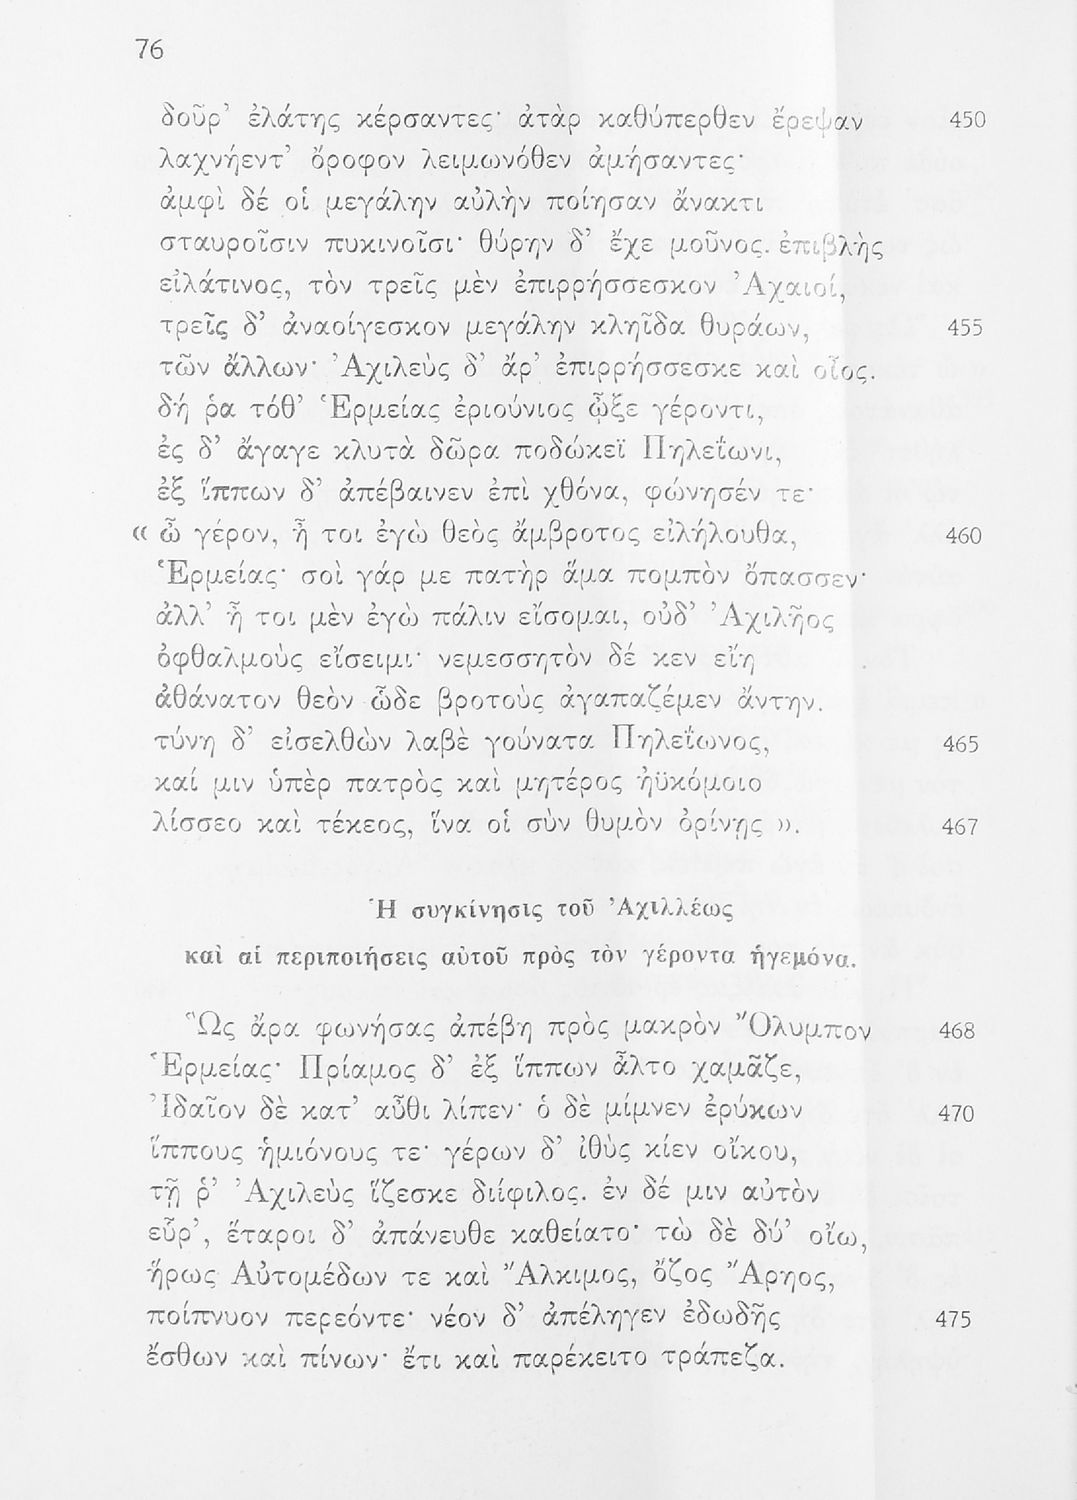 76
δοῦρ’ ἐλάτης κέρσαντες· ἀτὰρ καθύπερθεν ἔρεψαν 450
λαχνήεντ’ ὄροφον λειμωνόθεν ἀμήσαντες·
ἀμφὶ δέ οἱ μεγάλην αὐλὴν ποίησαν ἄνακτι
σταυροῖσιν πυκινοῖσι· θύρην δ’ ἔχε μοῦνος. ἐπιβλὴς
εἰλάτινος, τὸν τρεῖς μὲν ἐπιρρήσσεσκον Ἀχαιοί,
τρεῖς δ’ ἀναοίγεσκον μεγάλην κληῖδα θυράων, 455
τῶν ἄλλων· Ἀχιλεὺς δ’ ἄρ’ ἐπιρρήσσεσκε καὶ οἶος.
δή ῥα τόθ’ Ἑρμείας ἐριούνιος ᾦξε γέροντι,
ἐς δ’ ἄγαγε κλυτὰ δῶρα ποδώκεϊ Πηλεΐωνι,
ἐξ ἵππων δ’ ἀπέβαινεν ἐπὶ χθόνα, φώνησέν τε·
« ὦ γέρον, ἦ τοι ἐγὼ θεὸς ἄμβροτος εἰλήλουθα, 460
Ἑρμείας· σοὶ γάρ με πατὴρ ἅμα πομπὸν ὄπασσεν·
ἀλλ’ ἦ τοι μὲν ἐγὼ πάλιν εἴσομαι, οὐδ’ Ἀχιλῆος
ὀφθαλμοὺς εἴσειμι· νεμεσσητὸν δέ κεν εἴη
ἀθάνατον θεὸν ὧδε βροτοὺς ἀγαπαζέμεν ἄντην.
τύνη δ’ εἰσελθὼν λαβὲ γούνατα Πηλεΐωνος, 465
καί μιν ὑπὲρ πατρὸς καὶ μητέρος ἠϋκόμοιο
λίσσεο καὶ τέκεος, ἵνα οἱ σὺν θυμὸν ὀρίνῃς ». 467
Ἡ συγκίνησις τοῦ Ἀχιλλέως
καὶ αἱ περιποιήσεις αὐτοῦ πρὸς τὸν γέροντα ἡγεμόνα.
Ὣς ἄρα φωνήσας ἀπέβη πρὸς μακρὸν Ὄλυμπον 468
Ἑρμείας· Πρίαμος δ’ ἐξ ἵππων ἆλτο χαμᾶζε,
Ἰδαῖον δὲ κατ’ αὖθι λίπεν· ὁ δὲ μίμνεν ἐρύκων 470
ἵππους ἡμιόνους τε· γέρων δ’ ἰθὺς κίεν οἴκου,
τῇ ῥ’ Ἀχιλεὺς ἵζεσκε διίφιλος. ἐν δέ μιν αὐτὸν
εὗρ’, ἕταροι δ’ ἀπάνευθε καθείατο· τὼ δὲ δύ’ οἴω,
ἥρως Αὐτομέδων τε καὶ Ἄλκιμος, ὄζος Ἄρηος,
ποίπνυον περεόντε· νέον δ’ ἀπέληγεν ἐδωδῆς 475
ἔσθων καὶ πίνων· ἔτι καὶ παρέκειτο τράπεζα.